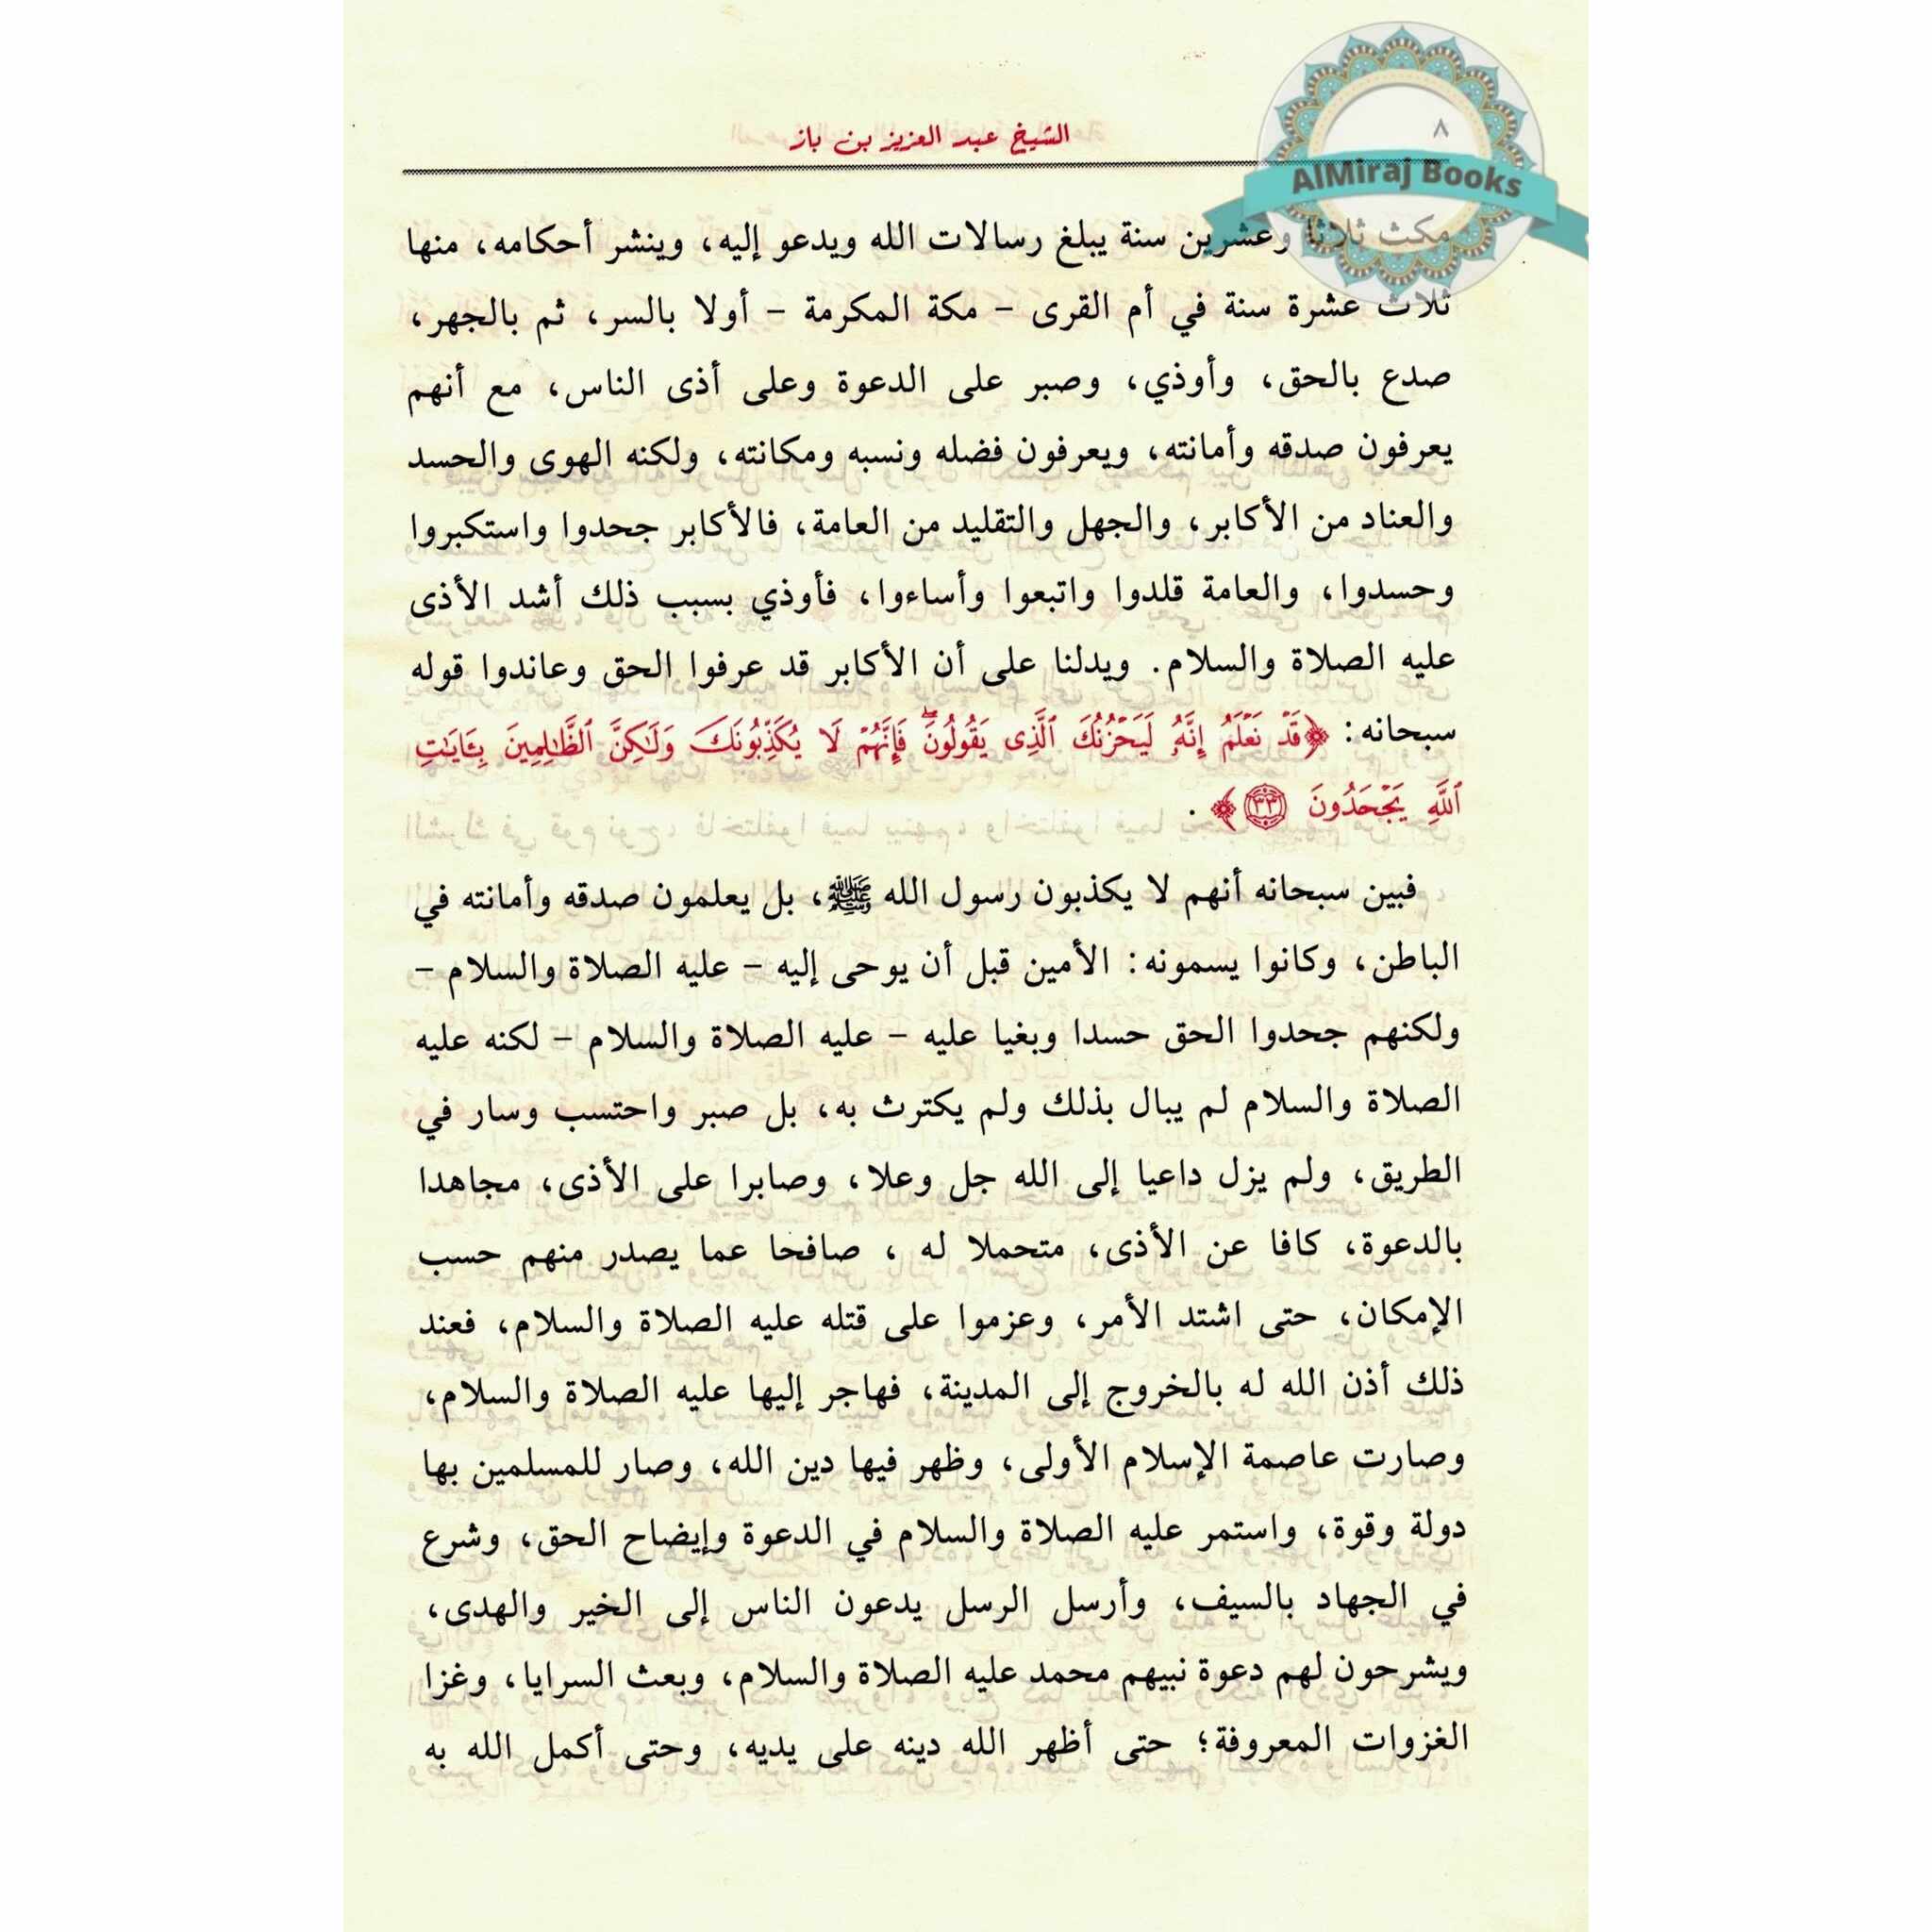 ٨
الشيخ عبد العزيز بن باز
AlMiraj Books
مكث ثلاثا وعشرين سنة يبلغ رسالات الله ويدعو إليه، وينشر أحكامه، منها
ثلاث عشرة سنة في أم القرى - مكة المكرمة - أولا بالسر، ثم بالجهر،
صدع بالحق، وأوذي، وصبر على الدعوة وعلى أذى الناس، مع أنهم
يعرفون صدقه وأمانته، ويعرفون فضله ونسبه ومكانته، ولكنه الهوى والحسد
والعناد من الأكابر، والجهل والتقليد من العامة، فالأكابر جحدوا واستكبروا
وحسدوا، والعامة قلدوا واتبعوا وأساءوا، فأوذي بسبب ذلك أشد الأذى
عليه الصلاة والسلام. ويدلنا على أن الأكابر قد عرفوا الحق وعاندوا قوله
سبحانه: ﴿قَدْ نَعْلَمُ إِنَّهُۥ لَيَحْزُنُكَ ٱلَّذِى يَقُولُونَۖ فَإِنَّهُمْ لَا يُكَذِّبُونَكَ وَلَٰكِنَّ ٱلظَّٰلِمِينَ بِـَٔايَٰتِ
ٱللَّهِ يَجْحَدُونَ ٣٣﴾.
فبين سبحانه أنهم لا يكذبون رسول الله ﷺ، بل يعلمون صدقه وأمانته في
الباطن، وكانوا يسمونه: الأمين قبل أن يوحى إليه - عليه الصلاة والسلام -
ولكنهم جحدوا الحق حسدا وبغيا عليه - عليه الصلاة والسلام - لكنه عليه
الصلاة والسلام لم يبال بذلك ولم يكترث به، بل صبر واحتسب وسار في
الطريق، ولم يزل داعيا إلى الله جل وعلا، وصابرا على الأذى، مجاهدا
بالدعوة، كافا عن الأذى، متحملا له ، صافحا عما يصدر منهم حسب
الإمكان، حتى اشتد الأمر، وعزموا على قتله عليه الصلاة والسلام، فعند
ذلك أذن الله له بالخروج إلى المدينة، فهاجر إليها عليه الصلاة والسلام،
وصارت عاصمة الإسلام الأولى، وظهر فيها دين الله، وصار للمسلمين بها
دولة وقوة، واستمر عليه الصلاة والسلام في الدعوة وإيضاح الحق، وشرع
في الجهاد بالسيف، وأرسل الرسل يدعون الناس إلى الخير والهدى،
ويشرحون لهم دعوة نبيهم محمد عليه الصلاة والسلام، وبعث السرايا، وغزا
الغزوات المعروفة؛ حتى أظهر الله دينه على يديه، وحتى أكمل الله به